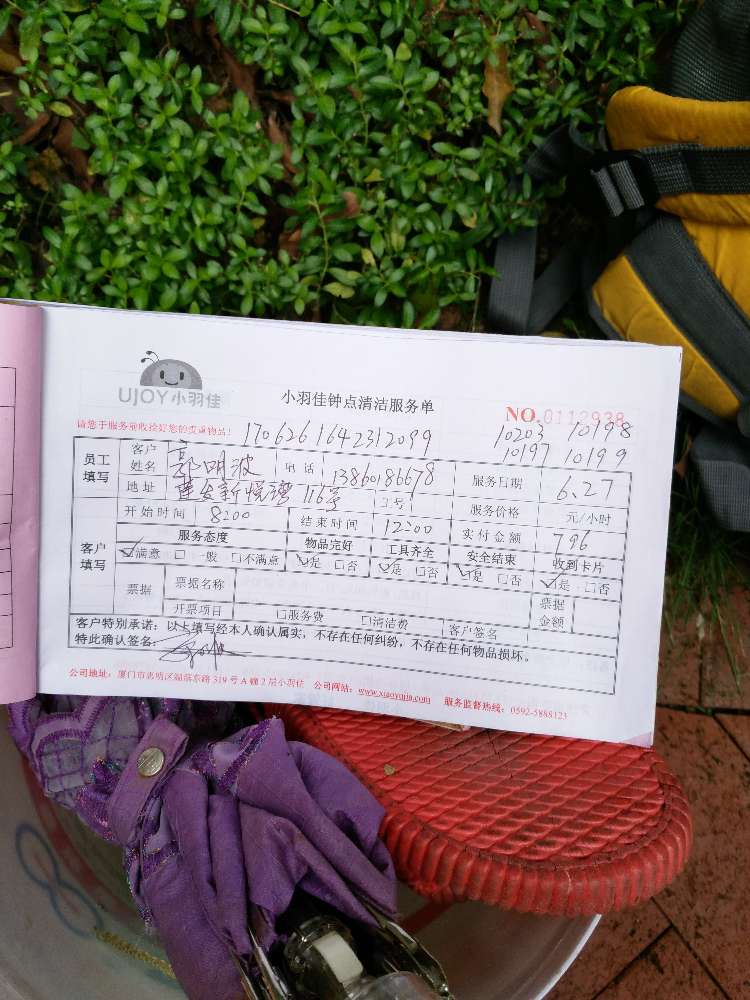 UJOY小羽佳
小羽佳钟点清洁服务单
NO.0112938
请您于服务前收捡好您的贵重物品!
1706261642312099
10203 10198
10197 10199
员工填写
客户姓名 郭明波 电话 13860186678 服务日期 6.27
地址 建发新悦湾 116号 服务价格 元/小时
开始时间 8:00 结束时间 12:00 实付金额 796
客户填写
服务态度 物品完好 工具齐全 安全结束 收到卡片
☑满意 □一般 □不满意 ☑是 □否 ☑是 □否 ☑是 □否 ☑是 □否
票据 票据名称 票据金额
开票项目 □服务费 □清洁费 客户签名
客户特别承诺:以上填写经本人确认属实,不存在任何纠纷,不存在任何物品损坏。
特此确认签名:
公司地址:厦门市思明区湖滨东路 319 号 A 幢 2 层小羽佳 公司网站:www.xiaoyujia.com 服务监督热线:0592-5888123